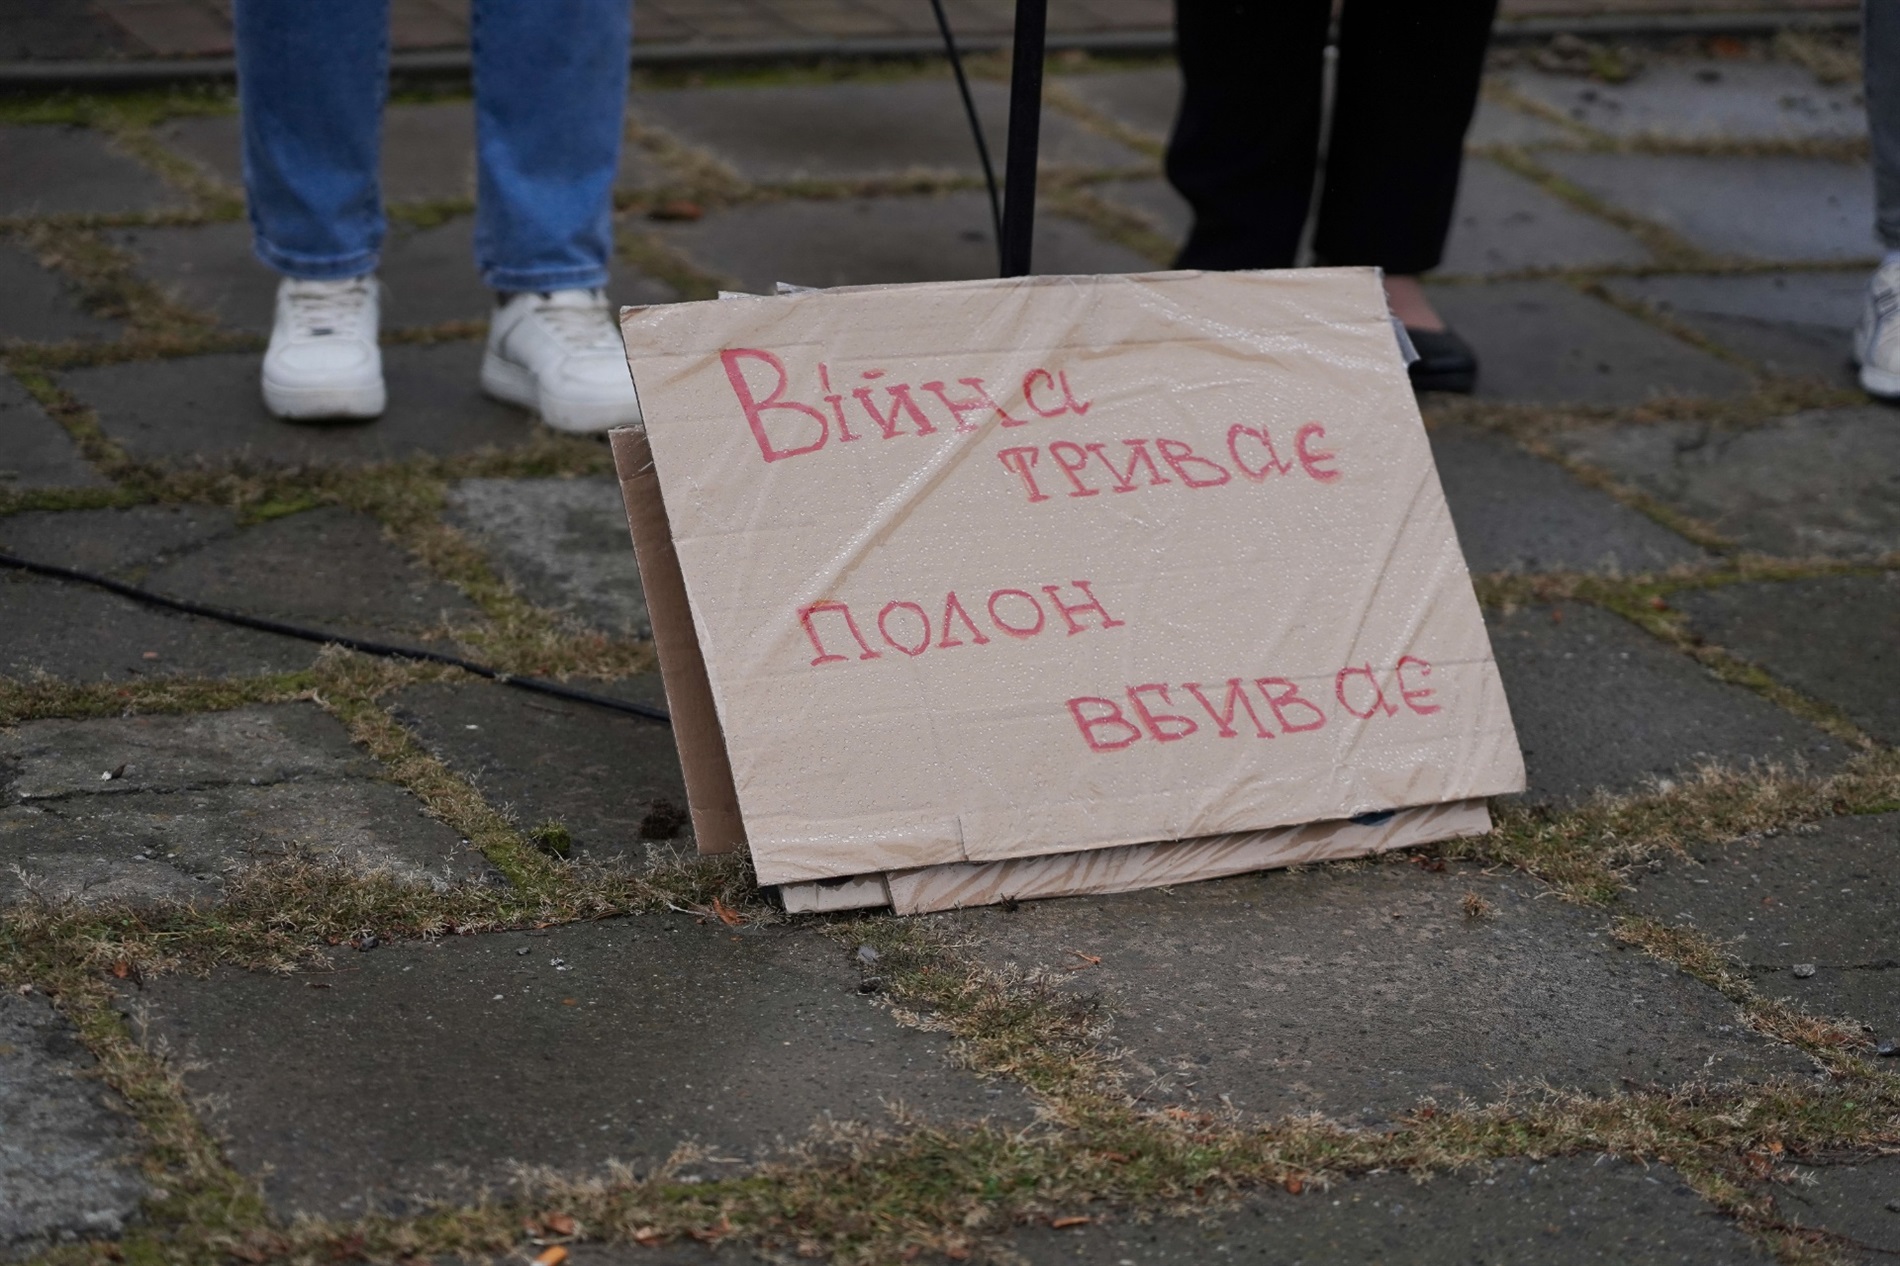 Війна
триває
полон
вбиває